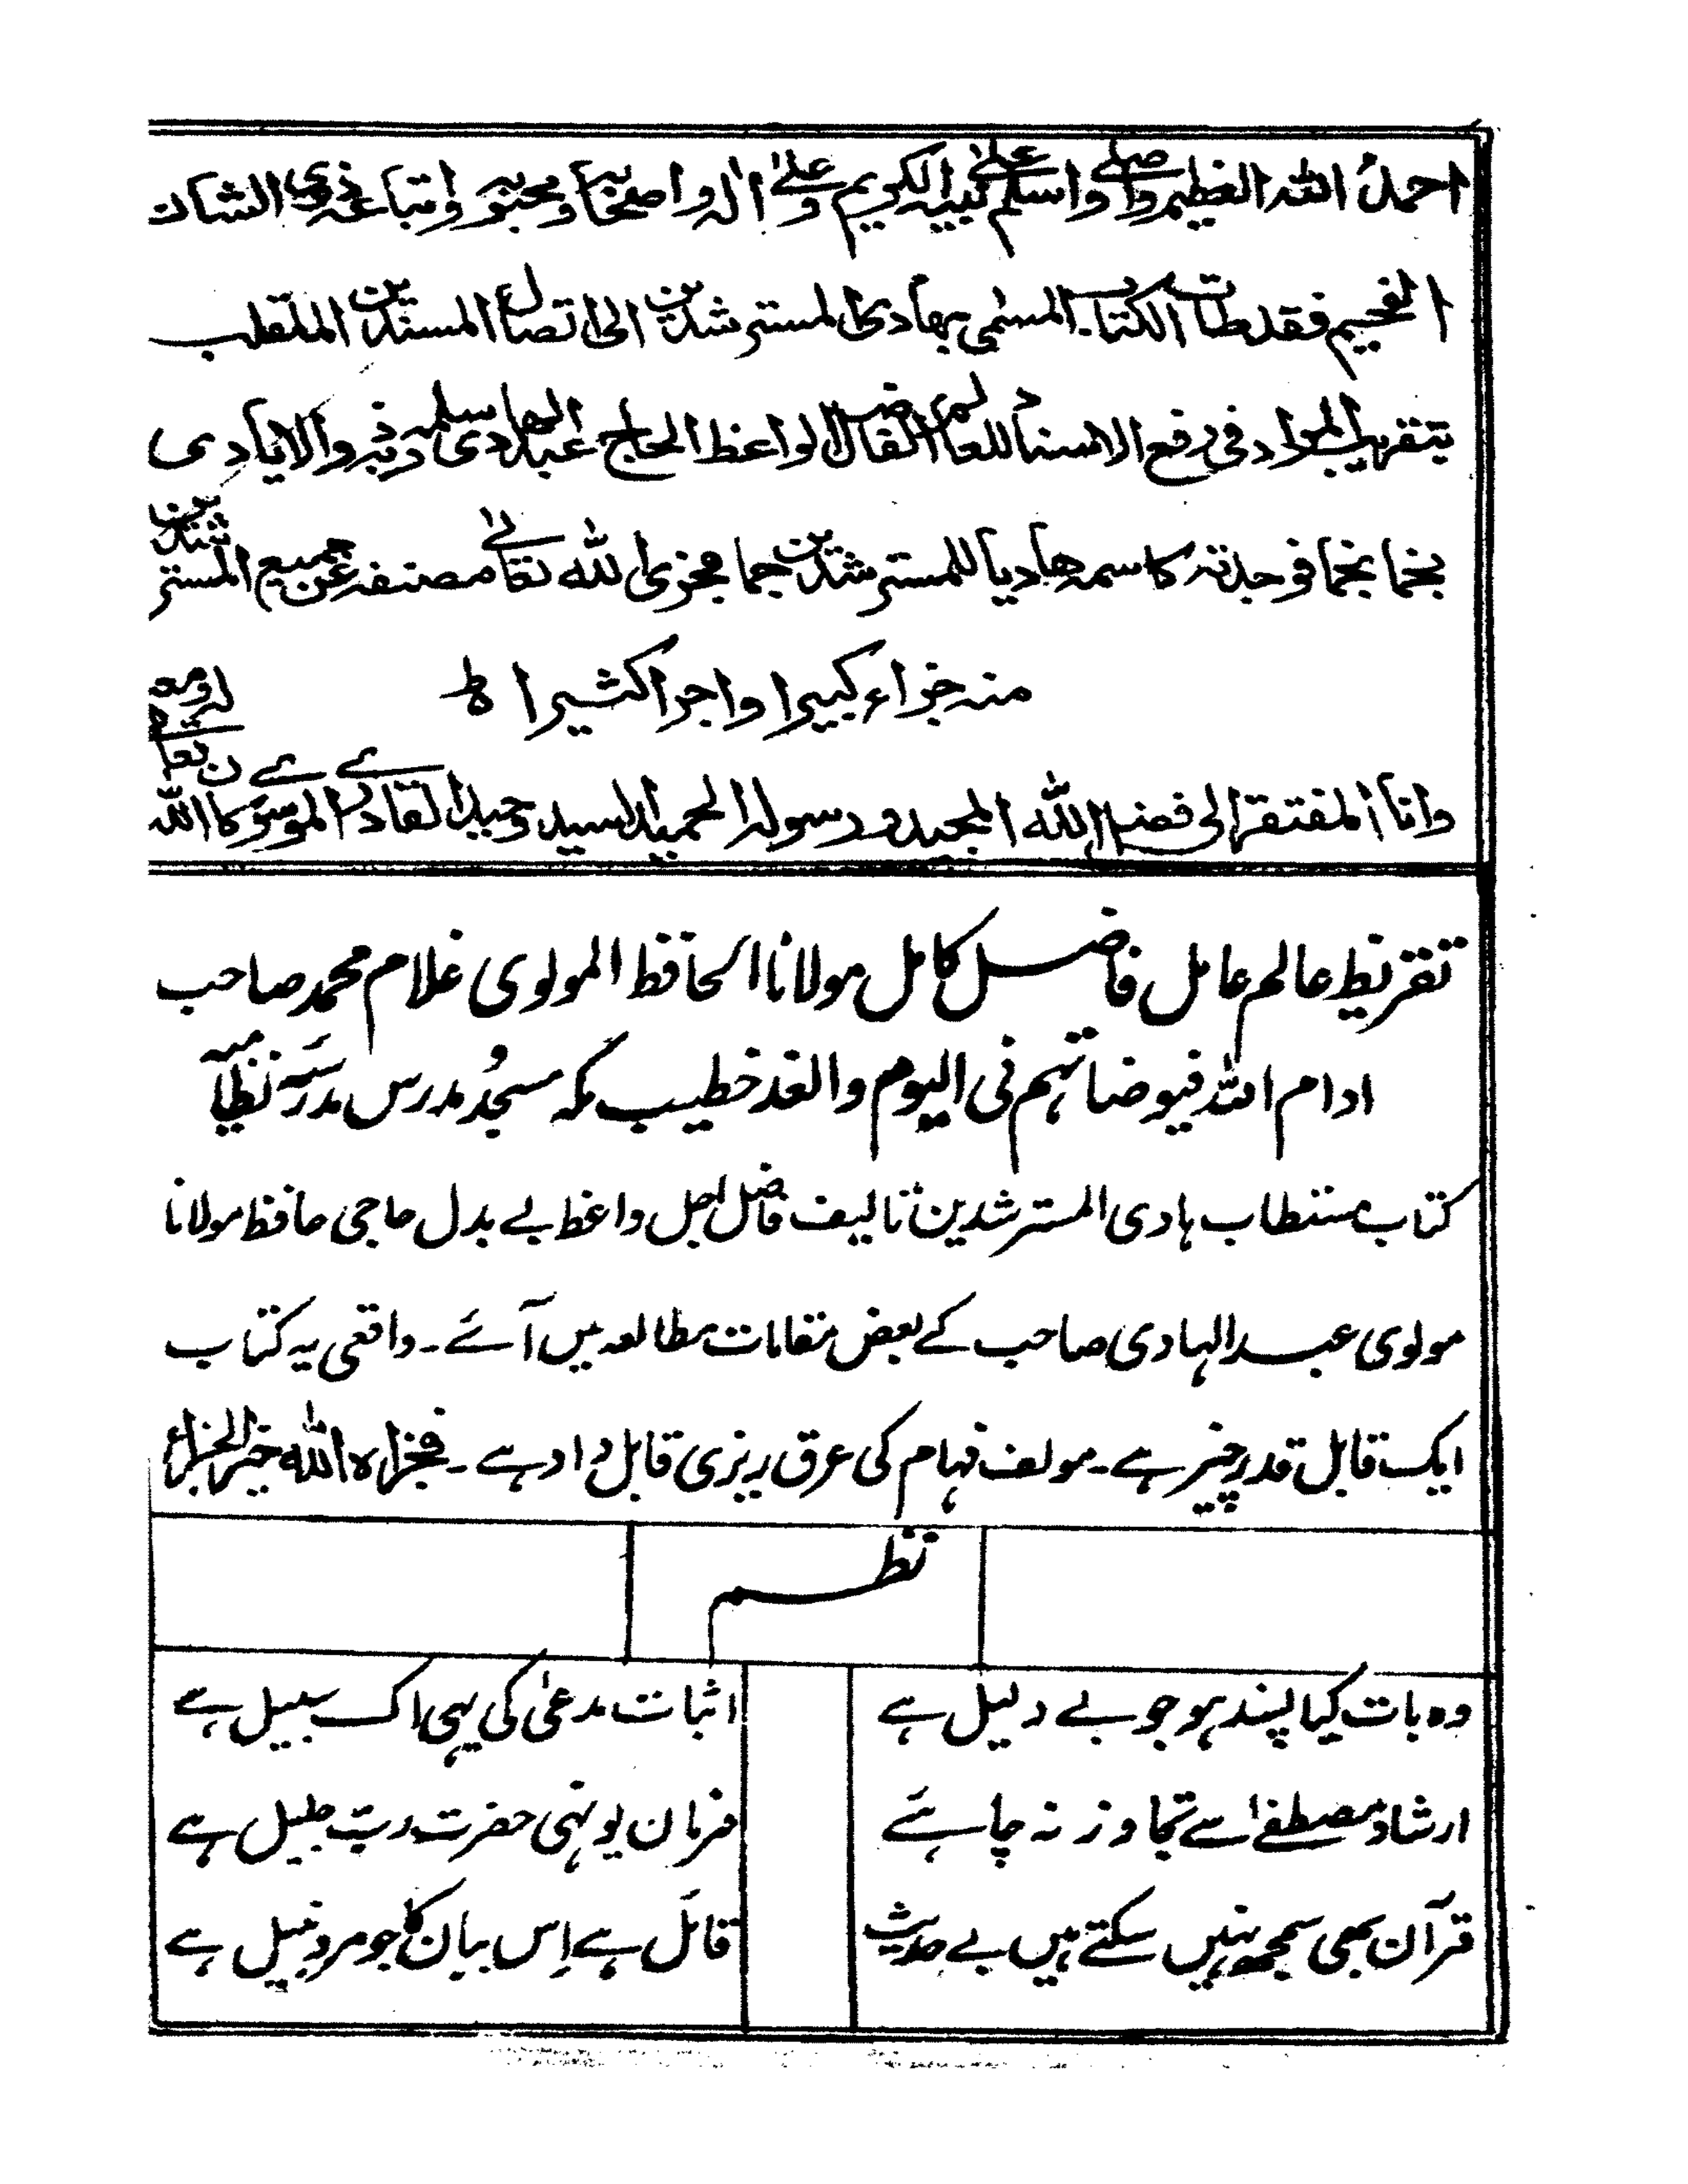 احمد الله العظیم واصلی واسلم علی نبیه الکریم وعلی اٰله واصحابه ومحبیه واتباعه ذوی الشان
الفخیم فقد طالعت الکتاب المسمی بهادی المسترشدین الی اتصال المسندین الملقب
بتقریب المراد فی رفع الاسناد للعالم الفاضل الواعظ الحاج عبد الهادی سلمه ذو الایادی
نجما نجما فوجدته کاسمه هادیا للمسترشدین جما فجزی الله تعالی مصنفه عن جمیع المسترشدین
منه جزاء کبیرا واجرا کثیرا ط
وانا المفتقر الی فضل الله المجید ورسوله الحمید السید وحید القادری الموسوی کان الله تعالی له ومعه
تقریظ عالم عامل فاضل کامل مولانا الحافظ المولوی غلام محمد صاحب
ادام الله فیوضاتهم فی الیوم والغد خطیب مکہ مسجد و مدرس مدرسہ نظامیہ
کتاب مستطاب ہادی المسترشدین تالیف فاضل اجل واعظ بے بدل حاجی حافظ مولانا
مولوی عبدالہادی صاحب کے بعض مقامات مطالعہ میں آئے۔ واقعی یہ کتاب
ایک قابل قدر چیز ہے۔ مولف فہام کی عرق ریزی قابل داد ہے۔ فجزاہ اللہ خیر الجزاء
نظم
وہ بات کیا پسند ہو جو بے دلیل ہے اثبات مدعیٰ کی یہی اک سبیل ہے
ارشاد مصطفےٰ سے تجاوز نہ چاہئے فرمان یونہی حضرت رب جلیل ہے
قرآن بھی سمجھ نہیں سکتے ہیں بے حدیث قائل ہے اِس بیان کا جو مرد نبیل ہے